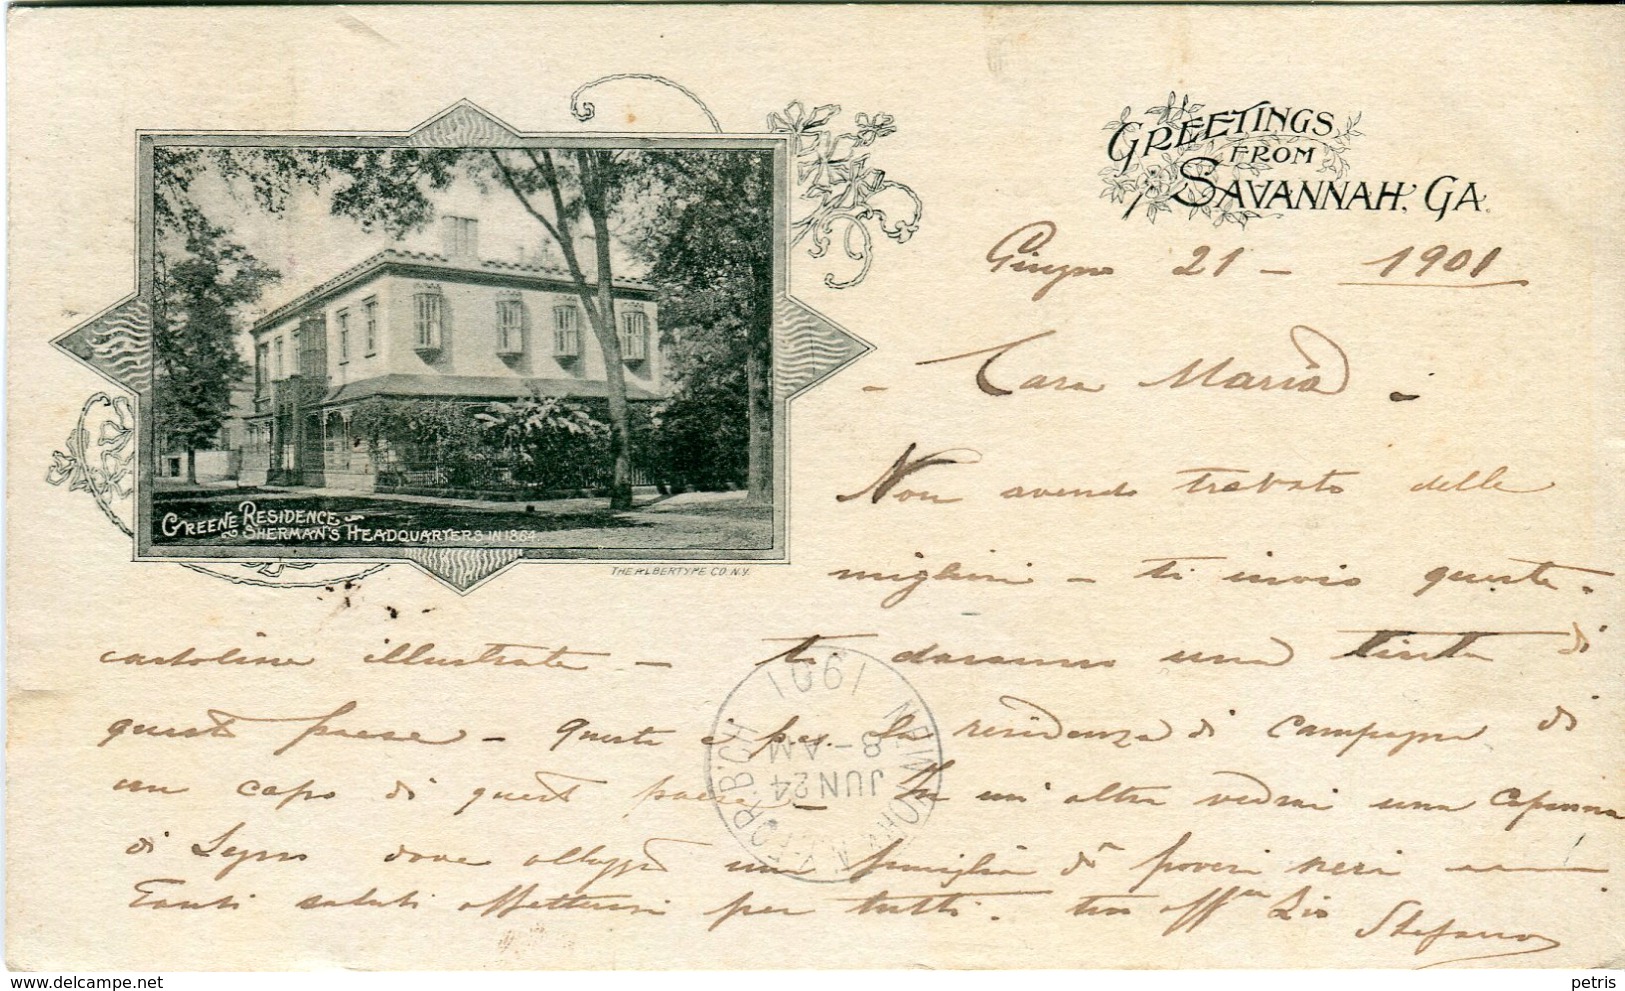 GREETINGS
FROM
SAVANNAH, GA.
Giugno 21 - 1901
- Cara Maria -
Non avendo trovato delle
migliori - ti invio queste
cartoline illustrate - ti daranno una tinta di
questo paese - Questa è la residenza di Campagna di
un capo di questo paese - In un altra vedrai una Capanna
di Legno dove alloggia una famiglia di poveri neri
Tanti saluti affettuosi per tutti. tuo aff Zio Stefano
GREENE RESIDENCE
SHERMAN'S HEADQUARTERS IN 1864
THE ALBERTYPE CO. N.Y.
1901
8-AM
JUN 24
petris